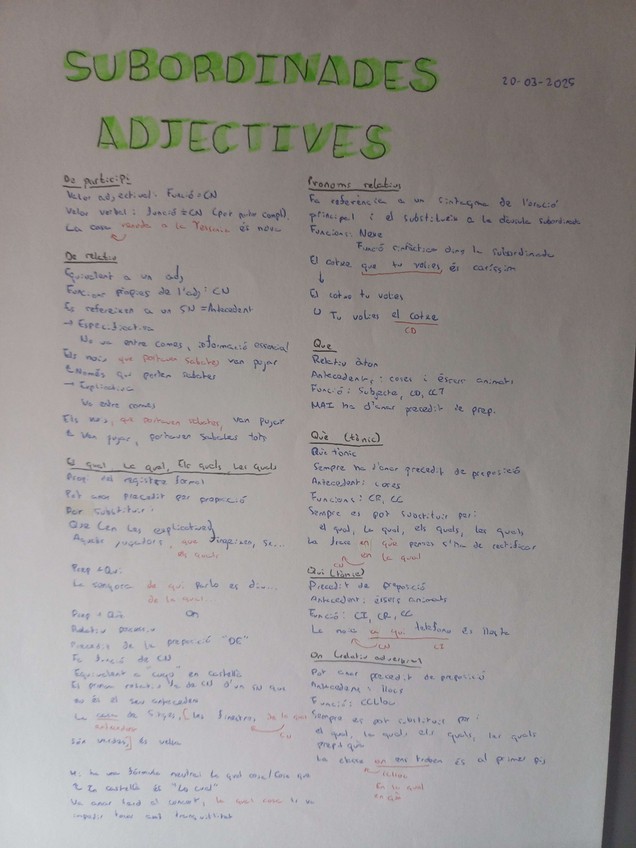 SUBORDINADES
20-03-2025
ADJECTIVES
De participi
Valor adjectival: Funció = CN
Valor verbal: funció ≠ CN (pot portar compl.)
La casa a la és nova
De relatiu
Equivalent a un adj
Funcions pròpies de l'adj: CN
Es refereixen a un SN = Antecedent
→ Especificativa
No va entre comes, informació essencial
Els nois que portaven sabates van pujar
Només qui porten sabates
→ Explicativa
Va entre comes
Els nois, que portaven sabates, van pujar
Van pujar, portaven sabates tots
El qual, La qual, Els quals, Les quals
Propi del registre formal
Pot anar precedit per preposició
Pot substituir:
Que (en les explicatives)
Aquets jugadors, que
els quals
Prep + Qui
La senyora de qui parlo es diu...
de la qual
Prep + Què On
Relatiu possessiu
Precedit de la preposició "DE"
Fa funció de CN
Equivalent a "cuyo" en castellà
El pronom relatiu fa de CN d'un SN que
no és el seu antecedent
La casa de Sitges, [les finestres de la qual
antecedent
CN
són verdes] és vella
hi ha una fórmula neutral la qual cosa/cosa que
En castellà és "Lo cual"
Va anar tard al concert, la qual cosa li va
impedir tocar amb tranquil·litat
Pronoms relatius
Fa referència a un sintagma de l'oració
principal i el substitueix a la clàusula subordinada
Funcions: Nexe
Funció sintàctica dins la subordinada
El cotxe que tu volies és caríssim
↓
El cotxe tu volies
Tu volies el cotxe
CD
Que
Relatiu àton
Antecedents: coses i éssers animats
Funció: Subjecte, CD, CCT
MAI ha d'anar precedit de prep.
Què (tònic)
Què tònic
Sempre ha d'anar precedit de preposició
Antecedent: coses
Funcions: CR, CC
Sempre es pot substituir per:
el qual, la qual, els quals, les quals
La frase en què penses s'ha de rectificar
en la qual
Qui (tònic)
Precedit de preposició
Antecedent: éssers animats
Funció: CI, CR, CC
La noia a qui telefono és llesta
CN CI
On (relatiu adverbial)
Pot anar precedit de preposició
Antecedent: llocs
Funció: CCLloc
Sempre es pot substituir per:
el qual, la qual, els quals, les quals
prep + què
La classe on ens trobem és al primer pis
CCLloc
En la qual
en què